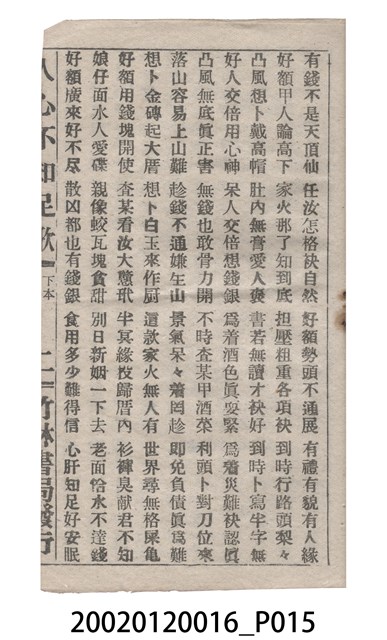 有錢不是天頂仙 任汝怎格袂自然 好額勢頭不通展 有禮有貌有人緣
好額甲人論高下 家火那了知到底 担壓粗重各項袂 到時行路頭梨々
凸風想卜戴高帽 肚內無膏愛人褒 書若無讀才袂好 到時卜寫半字無
好人交倍用心神 呆人交倍想錢銀 為着酒色眞要緊 為着災難袂認眞
凸風無底眞正害 無錢也敢骨力開 不時査某甲酒菜 利頭卜對刀位來
落山容易上山難 趁錢不通嫌生山 景氣呆々着罔趁 即免負債眞為難
想卜金磚起大厝 想卜白玉來作厨 這款家火無人有 世界尋無格屎龜
好額用錢塊開使 査某看汝大憨呆 半冥緣投歸厝內 衫褲臭献君不知
娘仔面水人愛碟 親像蛟瓦塊貪甜 別日新姻一下去 老面恰水不達錢
好額廣來好不尽 散凶都也有錢銀 食用多少難得信 心肝知足好安眠
人心不知足歌 下本 二 竹林書局發行
20020120016_P015